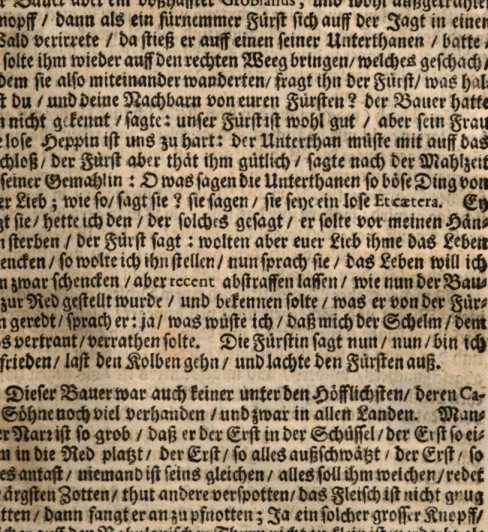 Bauer aber ein boßhaffter Grobianus, und wohl außgefraͤhter
nopff / dann als ein fürnemmer Fürst sich auff der Jagt in einen
Wald verirrete / da stieß er auff einen seiner Unterthanen / batte /
solte ihm wieder auff den rechten Weeg bringen / welches geschach /
dem sie also miteinander wanderten / fragt ihn der Fürst / was hal-
st du / und deine Nachbarn von euren Fürsten? der Bauer hatte
n nicht gekennt / sagte: unser Fürst ist wohl gut / aber sein Frau
e lose Heppin ist uns zu hart: der Unterthan müste mit auff das
chloß / der Fürst aber thät ihm gütlich / sagte nach der Mahlzeit
seiner Gemahlin: O was sagen die Unterthanen so böse Ding von
er Lieb; wie so / sagt sie? sie sagen / sie seye ein lose Etcætera. Ey
gt sie / hette ich den / der solches gesagt / er solte vor meinen Hän-
n sterben / der Fürst sagt: wolten aber euer Lieb ihme das Leben
encken / so wolte ich ihn stellen / nun sprach sie / das Leben will ich
n zwar schencken / aber recent abstraffen lassen / wie nun der Bau-
zur Red gestellt wurde / und bekennen solte / was er von der Für-
n geredt / sprach er: ja / was wüste ich / daß mich der Schelm / dem
s vertraut / verrathen solte. Die Fürstin sagt nun / nun / bin ich
frieden / last den Kolben gehn / und lachte den Fürsten auß.
Dieser Bauer war auch keiner unter den Höfflichsten / deren Ca-
Söhne noch viel verhanden / und zwar in allen Landen. Man-
er Narr ist so grob / daß er der Erst in der Schüssel / der Erst so ei-
m in die Red platzt / der Erst / so alles außschwätzt / der Erst / so
es antast / niemand ist seins gleichen / alles soll ihm weichen / redet
ärgsten Zotten / thut andere verspotten / das Fleisch ist nicht gnug
tten / dann fangt er an zu pfnotten; Ja ein solcher grosser Knopff /